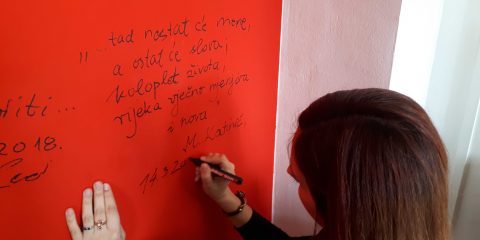 „...tad nestat će mene,
a ostat će slova,
koloplet života,
rijeka vječno
i nova"
M. Latinić,
14.3.20
iti...
2018.